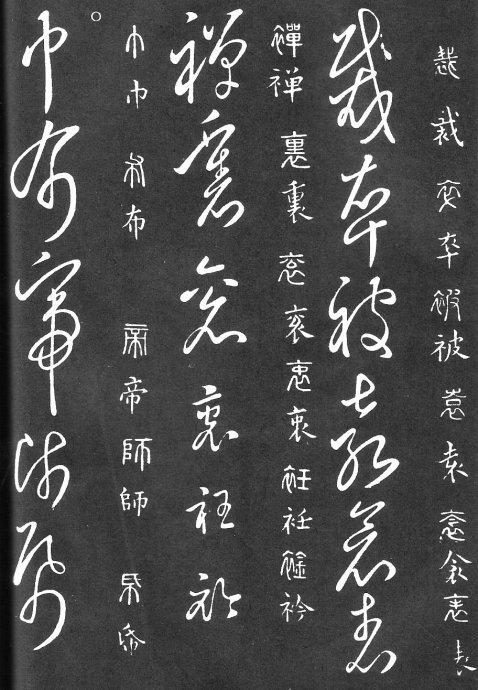 裁裁卒卒被被袁袁衾衾表表
裁卒被袁衾表
襌襌裏裏衮衮衷衷衽衽衿衿
襌裏衮衷衽衿
巾巾布布帝帝師師
巾布帝師